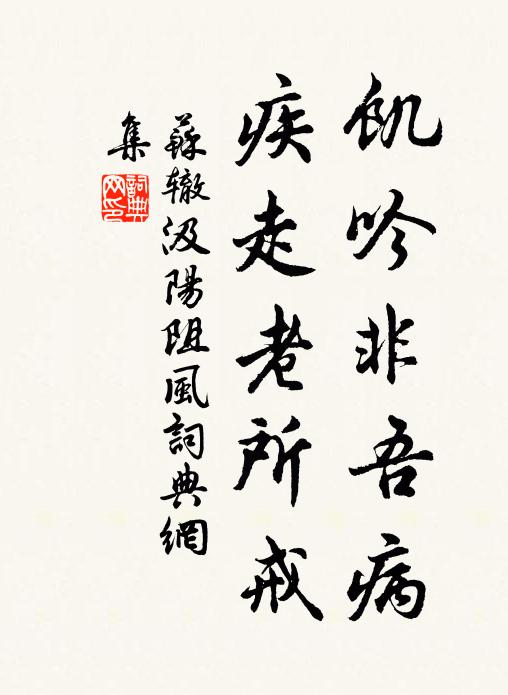 飢吟非吾病
疾走老所戒
蘇辙汲陽阻風詞典網
集
詞典
网印